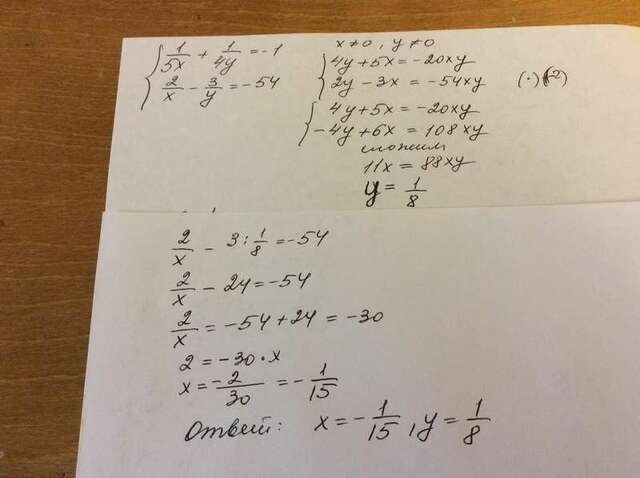 1/5x + 1/4y = -1
2/x - 3/y = -54
x ≠ 0, y ≠ 0
4y + 5x = -20xy
2y - 3x = -54xy (·)(-2)
4y + 5x = -20xy
-4y + 6x = 108xy
сложим
11x = 88xy
y = 1/8
2/x - 3 : 1/8 = -54
2/x - 24 = -54
2/x = -54 + 24 = -30
2 = -30 · x
x = -2/30 = -1/15
Ответ: x = -1/15, y = 1/8